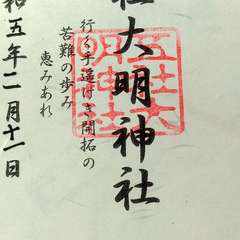 社大明神社
五社大
明神社
行く手遥けき開拓の
苦難の歩み
恵みあれ
和五年二月十一日